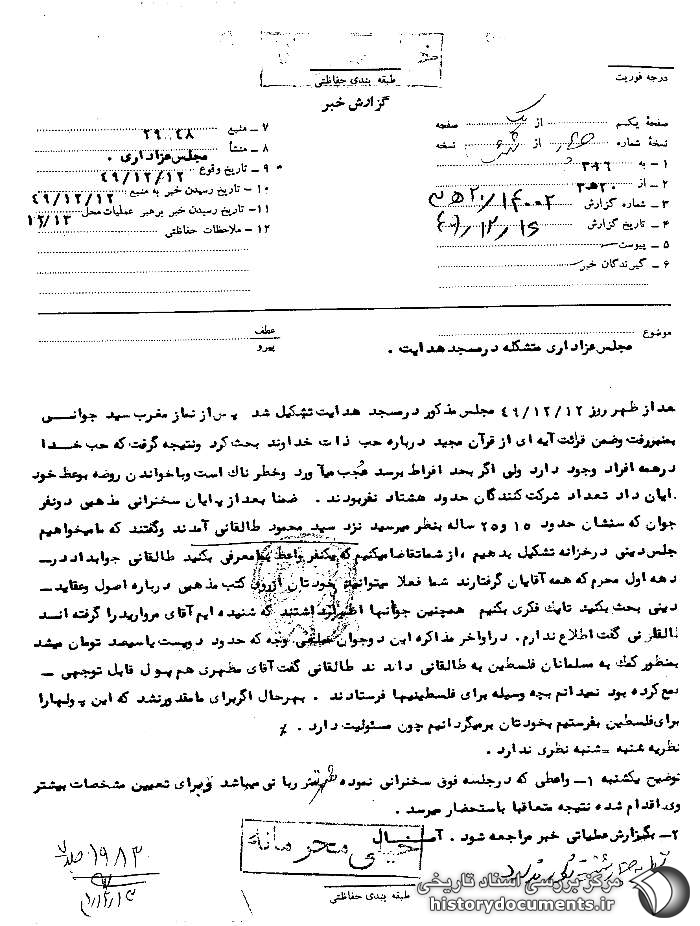 طبقه بندی حفاظتی
درجه فوریت
گزارش خبر
صفحهٔ یکم از یک صفحه
نسخهٔ شماره از نسخه
۱ - به ۳۱۶
۲ - از ۲۰ ﻫ ۳
۳ - شماره گزارش ۱۴۰۰۲ / ۲۰ ﻫ ۳
۴ - تاریخ گزارش ۴۹/۱۲/۱۶
۵ - پیوست
۶ - گیرندگان خبر
۷ - منبع ۲۹۰۴۸
۸ - منشأ مجلس عزاداری .
۹ - تاریخ وقوع ۴۹/۱۲/۱۲
۱۰ - تاریخ رسیدن خبر به منبع ۴۹/۱۲/۱۲
۱۱ - تاریخ رسیدن خبر برهبر عملیات محل ۱۲/۱۳
۱۲ - ملاحظات حفاظتی
موضوع
مجلس عزاداری متشکله در مسجد هدایت .
عطف
پیرو
عد از ظهر روز ۴۹/۱۲/۱۲ مجلس مذکور در مسجد هدایت تشکیل شد پس از نماز مغرب سید جوانی
بمنبر رفت وضمن قرائت آیه ای از قرآن مجید درباره حب ذات خداوند بحث کرد ونتیجه گرفت که حب خدا
در همه افراد وجود دارد ولی اگر بحد افراط برسد عجب میآورد وخطر ناک است وباخواندن روضه بوعظ خود
پایان داد تعداد شرکت کنندگان حدود هشتاد نفر بودند . ضمنا بعد از پایان سخنرانی مذهبی دونفر
جوان که سنشان حدود ۱۵ و ۲۵ ساله بنظر میرسید نزد سید محمود طالقانی آمدند وگفتند که ما میخواهیم
جلس دینی درخزانه تشکیل بدهیم ، از شما تقاضا میکنیم که یکنفر واعظ بما معرفی بکنید طالقانی جواب داد در
دهه اول محرم که همه آقایان گرفتارند شما فعلا میتوانید خودتان از روی کتب مذهبی درباره اصول وعقاید
دینی بحث بکنید تا یک فکری بکنیم همچنین جوانها اظهار داشتند که شنیده ایم آقای مروارید را گرفته اند
طالقانی گفت اطلاع ندارم . در اواخر مذاکره این دوجوان مبلغی وجه که حدود دویست یا سیصد تومان میشد
بمنظور کمک به مسلمانان فلسطین به طالقانی دادند طالقانی گفت آقای مطهری هم پول قابل توجهی
جمع کرده بود نمیدانم بچه وسیله برای فلسطینیها فرستادند . بهر حال اگر برای ما مقدور نشد که این پولها را
برای فلسطین بفرستیم بخودتان برمیگردانیم چون مسئولیت دارد .
نظریه شنبه - شنبه نظری ندارد .
توضیح یکشنبه ۱ - واعظی که در جلسه فوق سخنرانی نموده میباشد و برای تعیین مشخصات بیشتر
وی اقدام شده نتیجه متعاقبا باستحضار میرسد .
۲ - بگزارش عملیاتی خبر مراجعه شود .
خیلی محرمانه
طبقه بندی حفاظتی
۱۹۸۳
مرکز بررسی اسناد تاریخی
historydocuments.ir